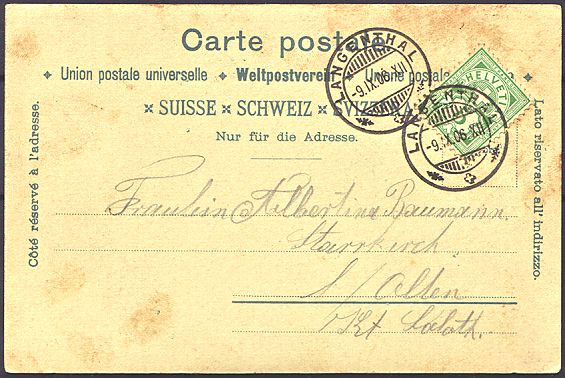 Carte postale
Union postale universelle Weltpostverein Unione postale
SUISSE SCHWEIZ SVIZZERA
Nur für die Adresse.
Côté réservé à l'adresse.
Lato riservato all' indirizzo.
LANGENTHAL
-9.IX.06.XII
LANGENTHAL
-9.IX.06.XII
HELVETIA
Fräulein Albertina Baumann.
Starrkirch
b/Olten
Kt Soloth.